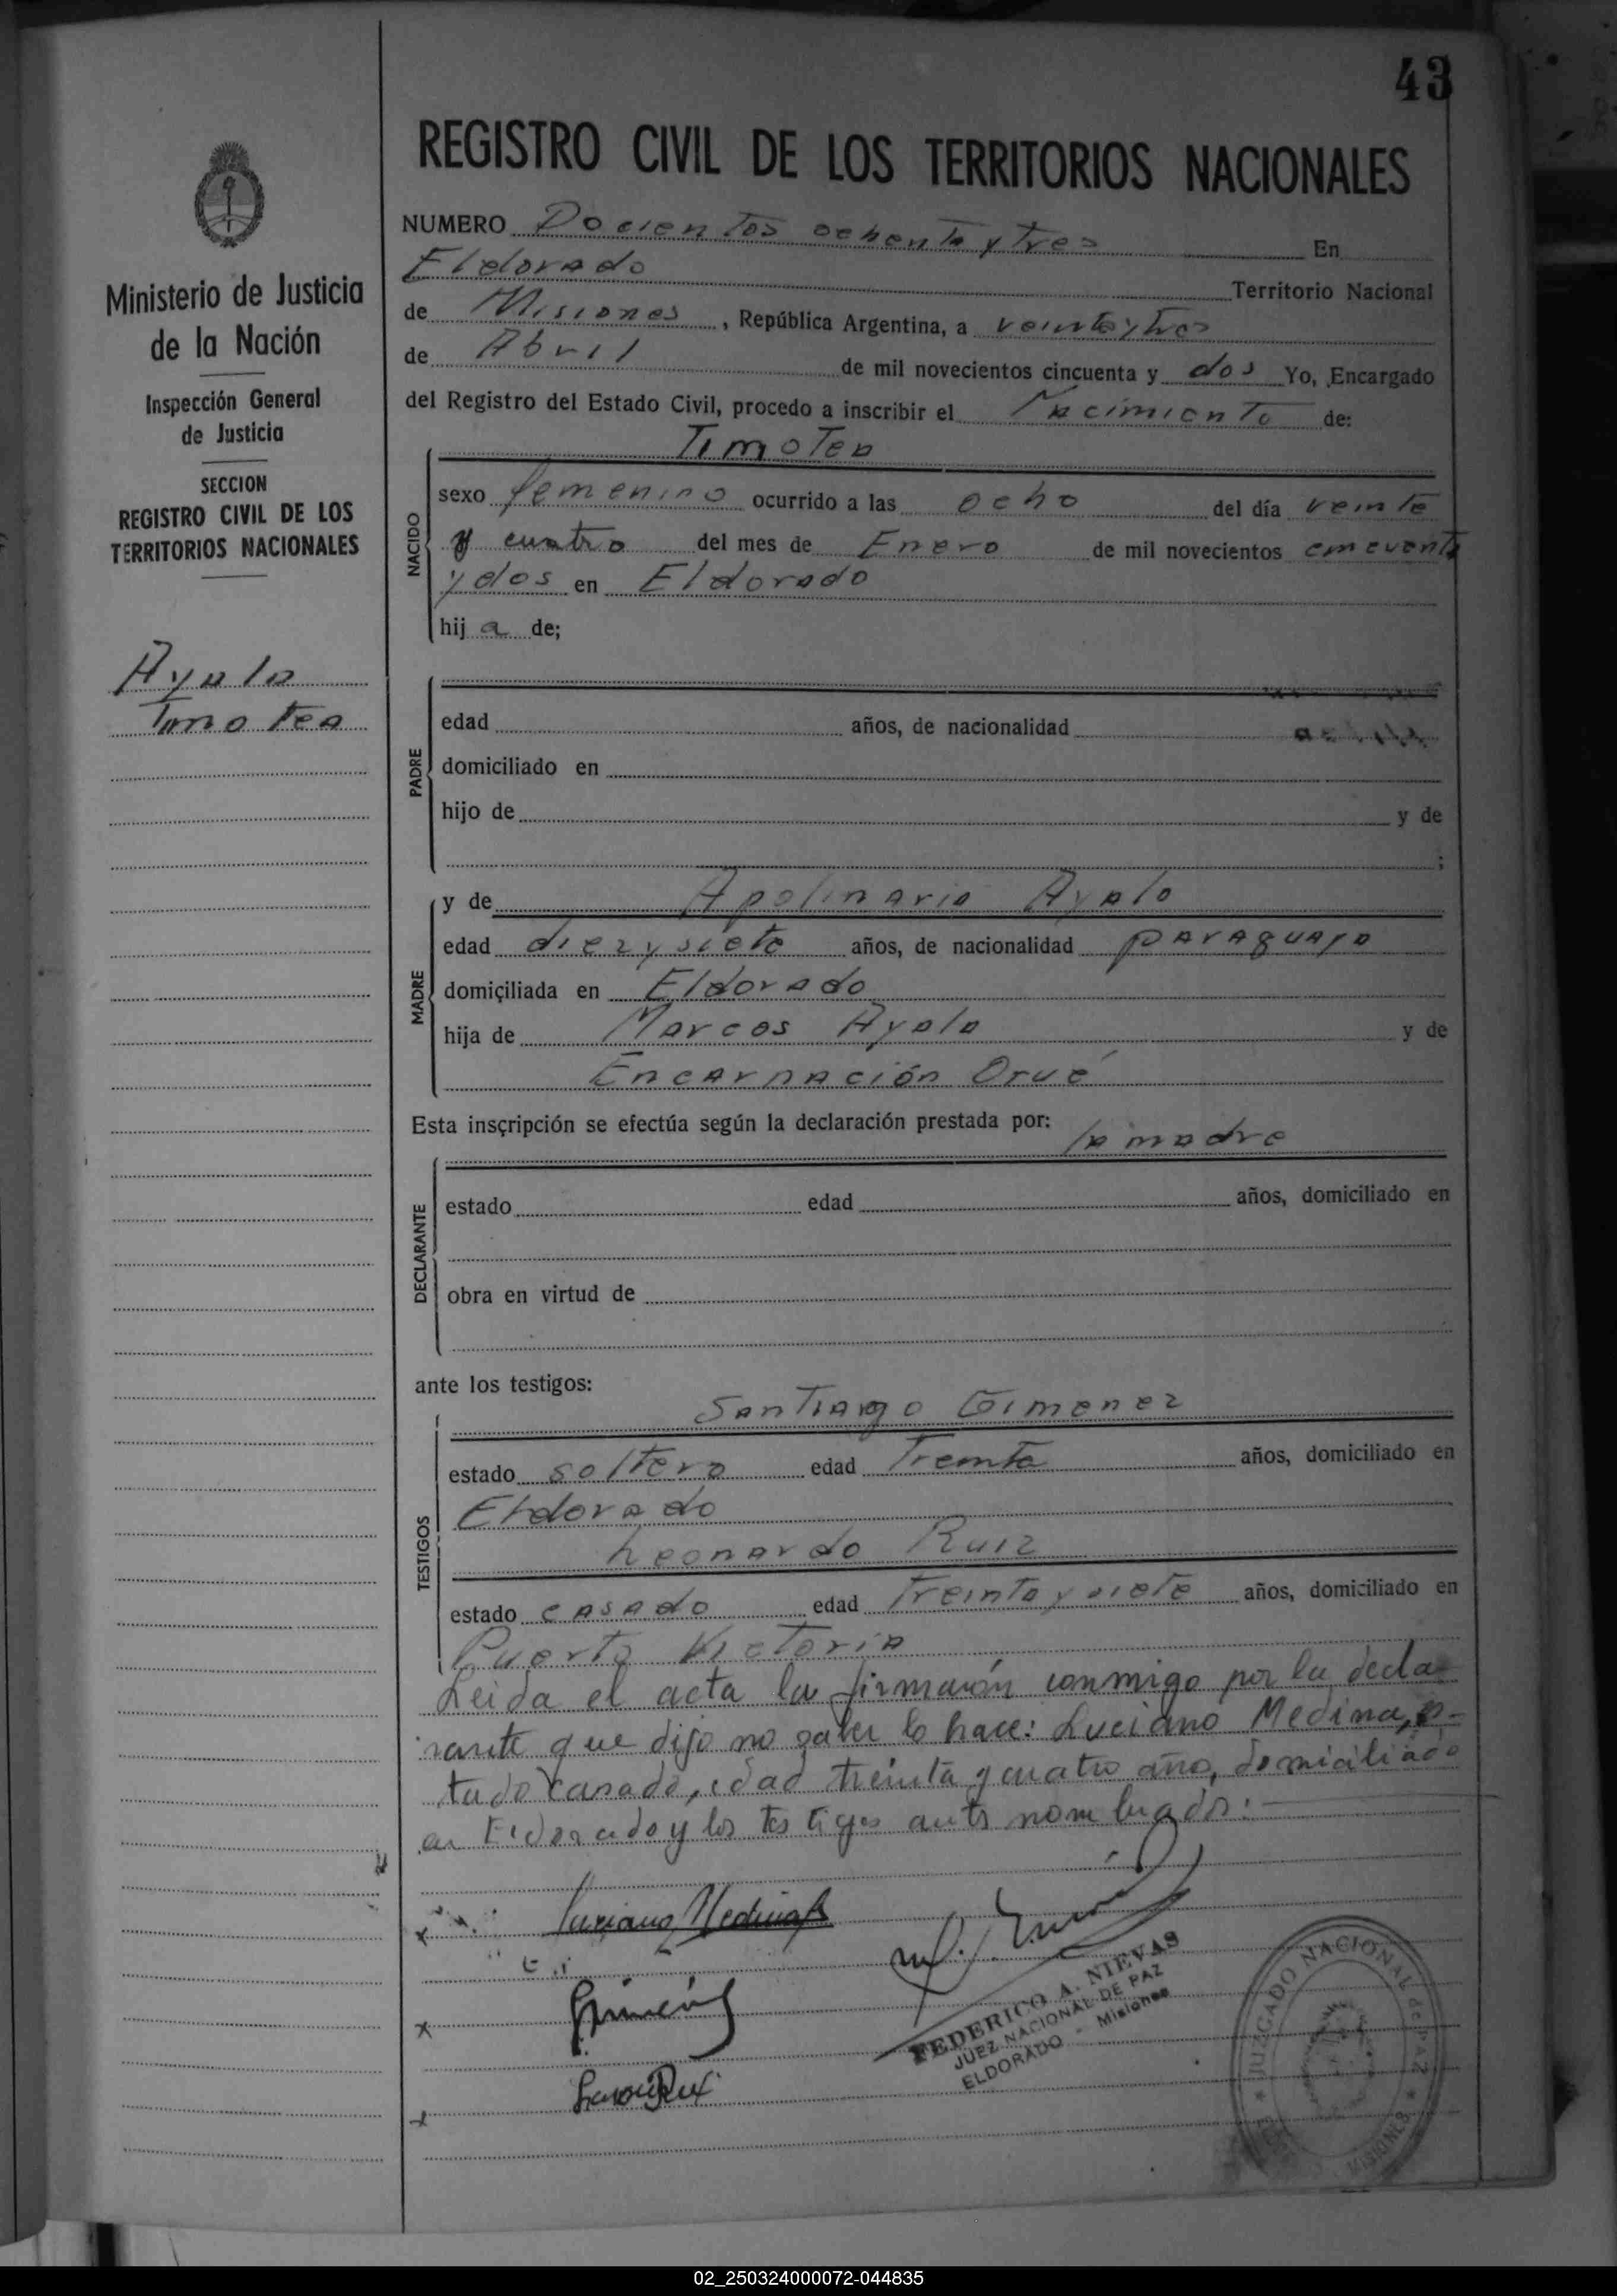 43
REGISTRO CIVIL DE LOS TERRITORIOS NACIONALES
NUMERO Docientos ochenta y tres En
Eldorado Territorio Nacional
de Misiones, República Argentina, a veinte y tres
de Abril de mil novecientos cincuenta y dos Yo, Encargado
del Registro del Estado Civil, procedo a inscribir el Nacimiento de:
Ministerio de Justicia
de la Nación
Inspección General
de Justicia
SECCION
REGISTRO CIVIL DE LOS
TERRITORIOS NACIONALES
Ayala
Timotea
NACIDO
Timotea
sexo femenino ocurrido a las ocho del día veinte
y cuatro del mes de Enero de mil novecientos cincuenta
y dos en Eldorado
hij a de;
PADRE
edad años, de nacionalidad
domiciliado en
hijo de y de
;
MADRE
y de Apolinaria Ayala
edad diez y siete años, de nacionalidad paraguaya
domiciliada en Eldorado
hija de Marcos Ayala y de
Encarnación Orué
Esta inscripción se efectúa según la declaración prestada por: la madre
DECLARANTE
estado edad años, domiciliado en
obra en virtud de
ante los testigos:
TESTIGOS
Santiago Gimenez
estado soltero edad Treinta años, domiciliado en
Eldorado
Leonardo Ruiz
estado casado edad Treinta y siete años, domiciliado en
Puerto Victoria
Leida el acta la firmarón conmigo por la decla-
rante que dijo no saber lo hace: Luciano Medina, es-
tado casado, edad treinta y cuatro año, domiciliado
en Eldorado y los testigos antes nombrados:
x Luciano Medina
x
x
FEDERICO A. NIEVAS
JUEZ NACIONAL DE PAZ
ELDORADO - Misiones
JUZGADO NACIONAL de PAZ
MISIONES
02_250324000072-044835